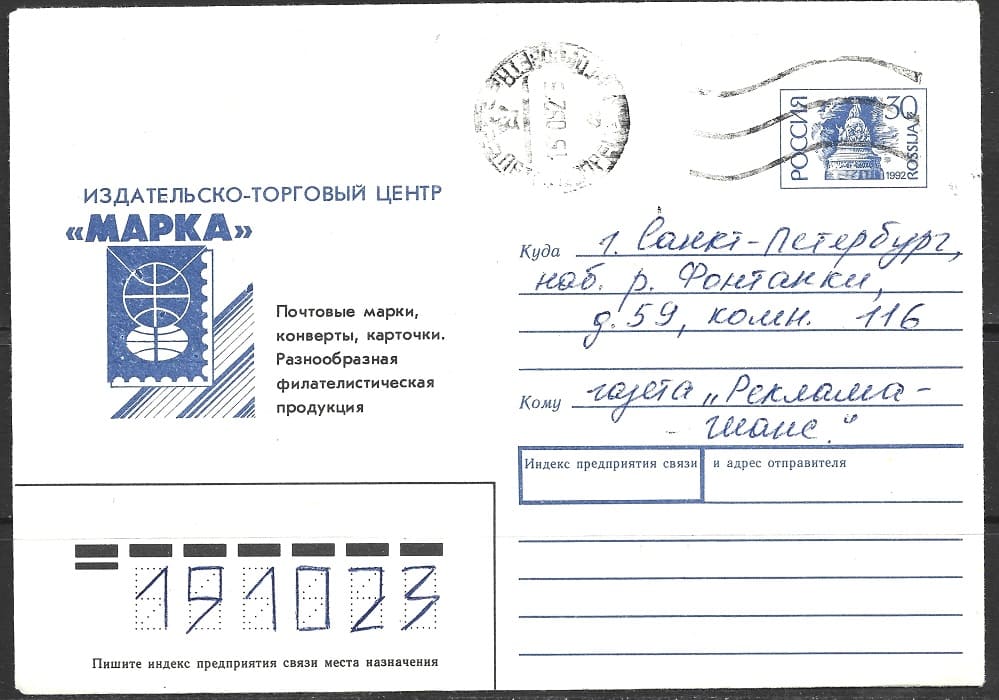 РОССИЯ
30
1992
ROSSIJA
ИЗДАТЕЛЬСКО-ТОРГОВЫЙ ЦЕНТР
«МАРКА»
Почтовые марки,
конверты, карточки.
Разнообразная
филателистическая
продукция
Куда г. Санкт-Петербург,
наб. р. Фонтанки,
д. 59, комн. 116
Кому газета „Реклама-
- Шанс."
Индекс предприятия связи и адрес отправителя
191023
Пишите индекс предприятия связи места назначения